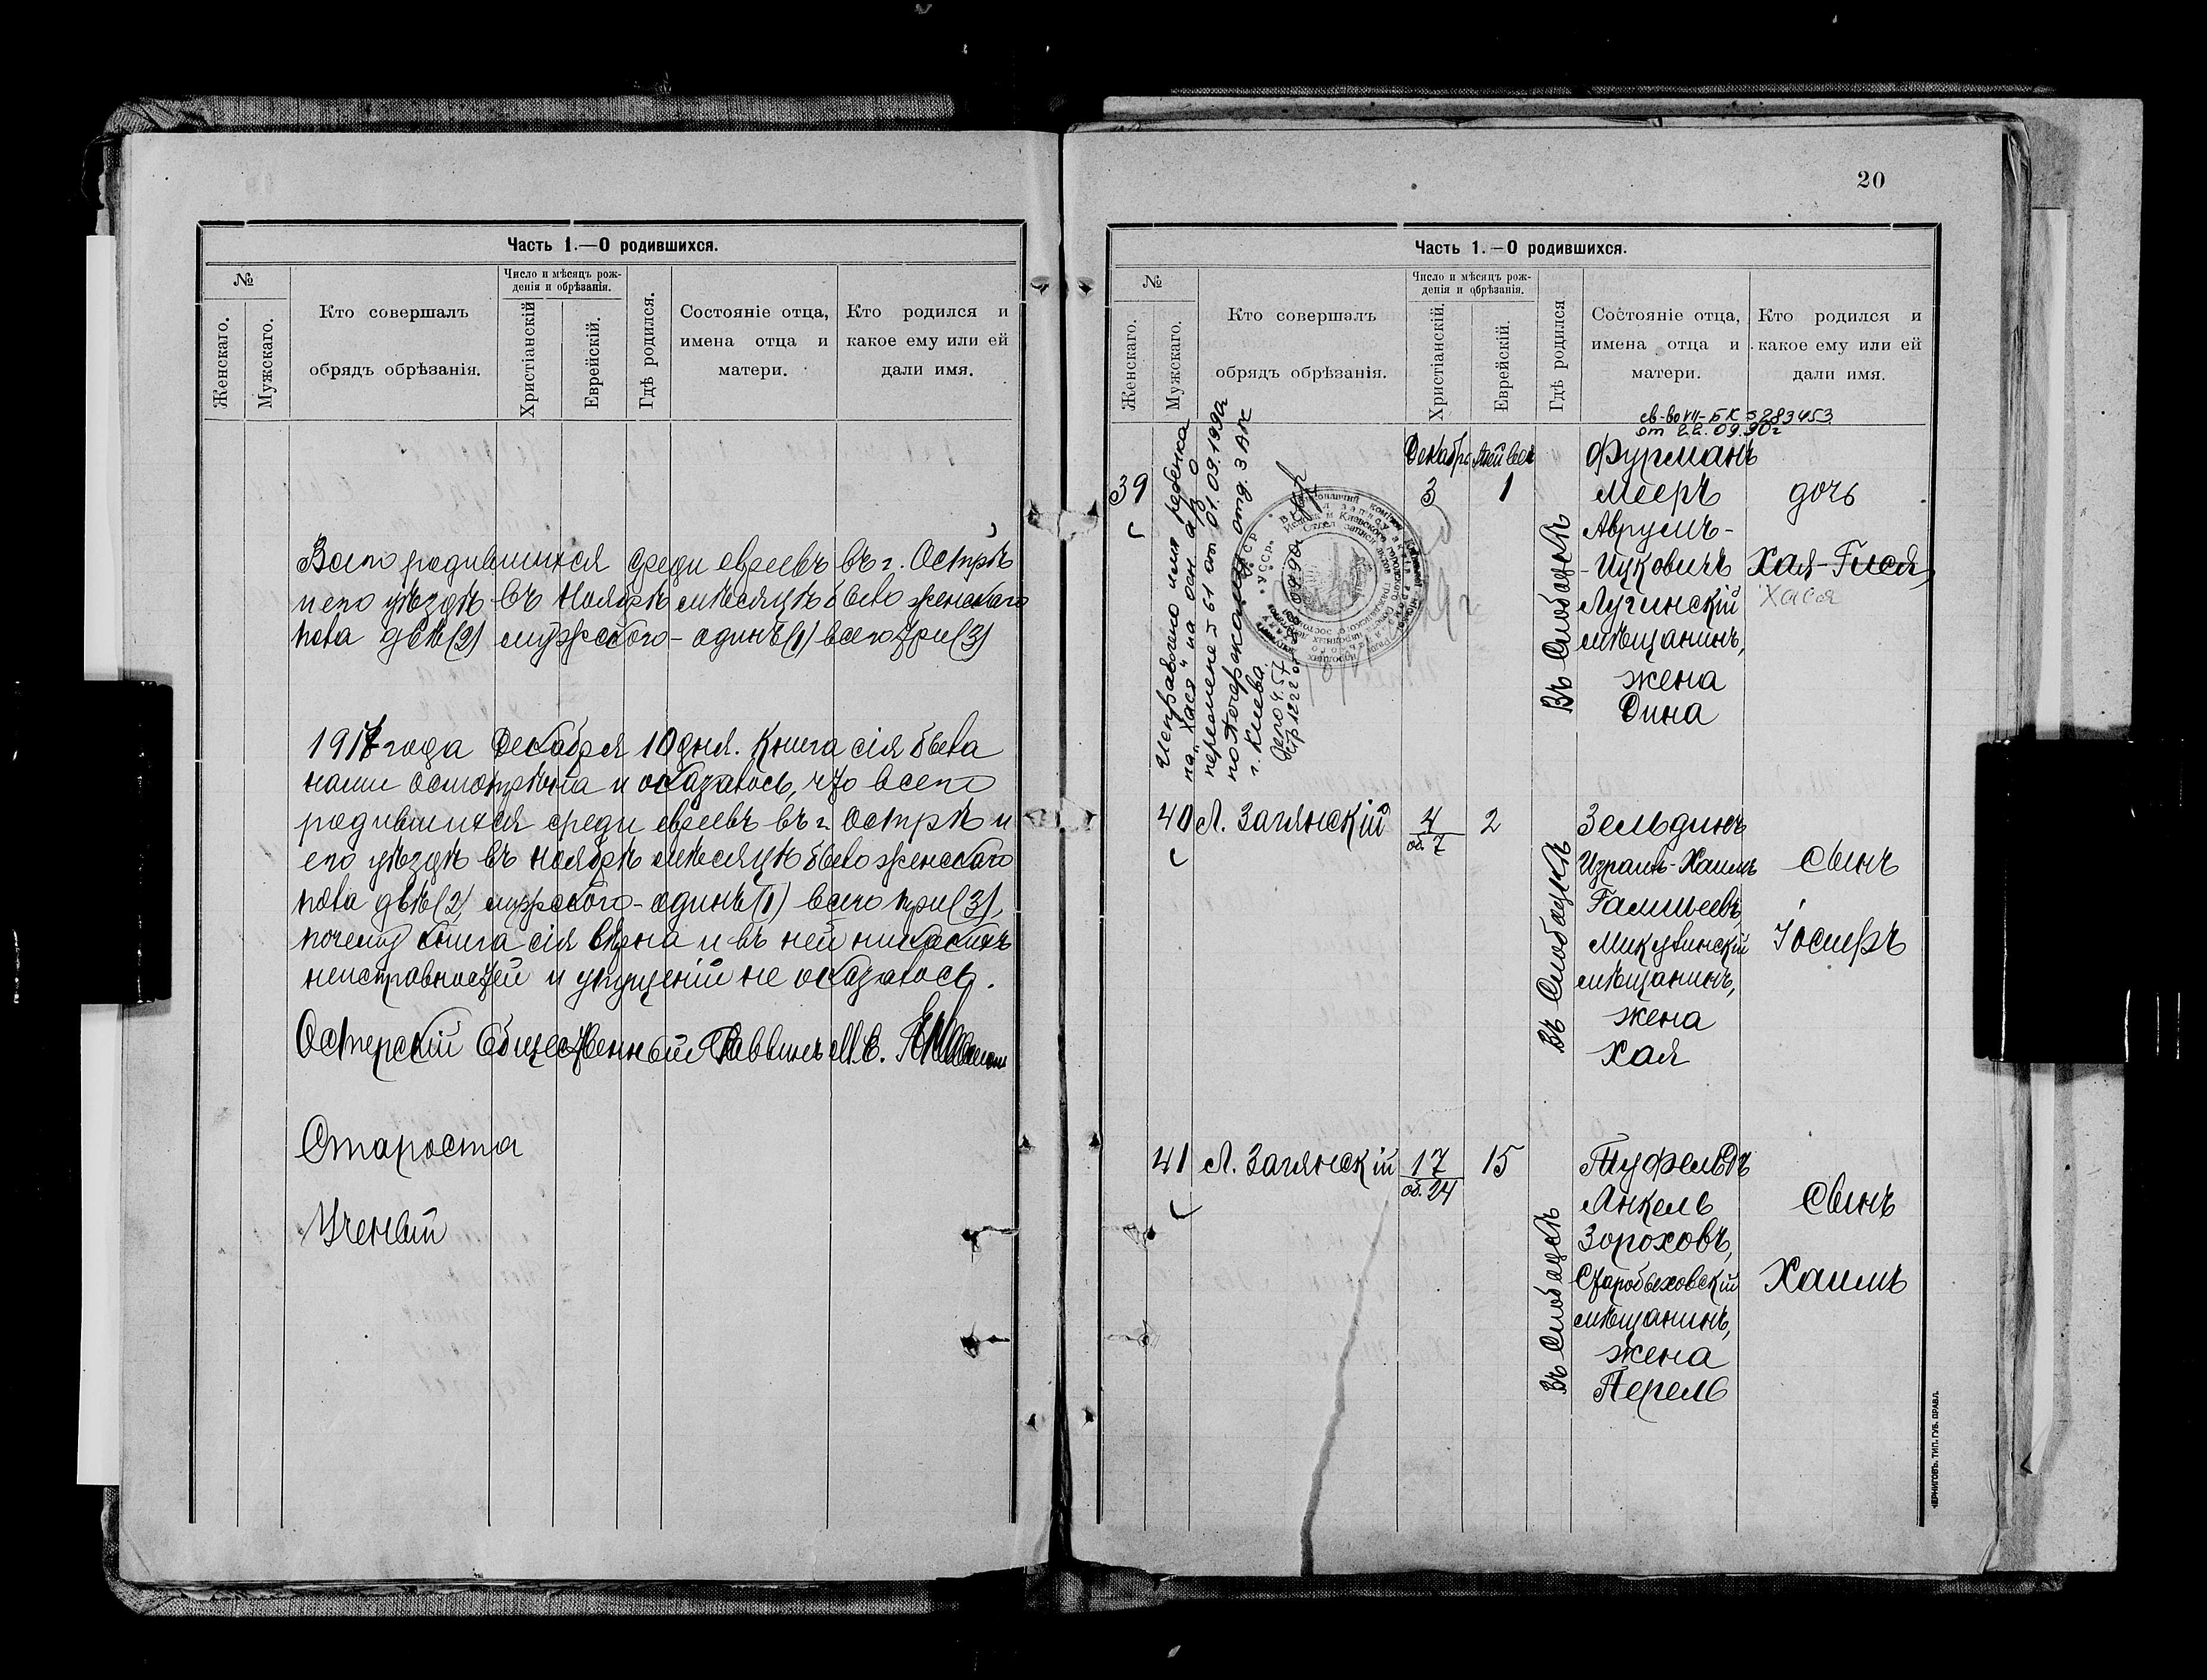 Часть 1.—О родившихся.
№
Женскаго.
Мужскаго.
Кто совершалъ
обрядъ обрѣзанія.
Число и мѣсяцъ рож-
денія и обрѣзанія.
Христіанскій
Еврейскій.
Гдѣ родился.
Состояніе отца,
имена отца и
матери.
Кто родился и
какое ему или ей
дали имя.
Всего родившихся среди евреевъ въ г. Острѣ
и его уѣздѣ въ Ноябрѣ мѣсяцѣ было женскаго
пола двѣ (2) мужского - одинъ (1) всего три (3)
1917 года Декабря 10 дня. Книга сія была
нами осмотрѣна и оказалось, что всего
родившихся среди евреевъ въ г. Острѣ и
его уѣздѣ въ Ноябрѣ мѣсяцѣ было женскаго
пола двѣ (2) мужского - одинъ (1) всего три (3),
почему книга сія вѣрна и въ ней никакихъ
неисправностей и упущеній не оказалось.
Остерскій Общественный Раввинъ М. С.
Староста
Ученый
20
Часть 1.—О родившихся.
№
Женскаго.
Мужскаго.
Кто совершалъ
обрядъ обрѣзанія.
Число и мѣсяцъ рож-
денія и обрѣзанія.
Христіанскій.
Еврейскій.
Гдѣ родился
Состояніе отца,
имена отца и
матери.
Кто родился и
какое ему или ей
дали имя.
св-во VII-БК 5283453
от 22.09.90г
39
Исправлено имя ребенка
на "Хася" на осн. а/з о
перемене № 61 от 01.09.1990
по Печерскому отд. ЗАГС
г. Киева
Дело 4.57
Декабрь
3
1
Въ Слободкѣ
Фурманъ
Мееръ
Аврумъ-
-Ицковичъ
Лугинскій
мѣщанинъ,
жена
Дина
дочь
Хая-Гися
Хася
40
Л. Загянскій
4
об. 7
2
Въ Слободкѣ
Зельдинъ
Израиль-Хаимъ
Гамшеевъ,
мѣщанинъ,
жена
Хая
сынъ
Іосифъ
41
Л. Загянскій
17
об. 24
15
Въ Слободкѣ
Туфельдъ
Янкель
Зороховъ,
Старобыховскій
мѣщанинъ,
жена
Перель
сынъ
Хаимъ
ЧЕРНИГОВЪ. ТИП. ГУБ. ПРАВЛ.